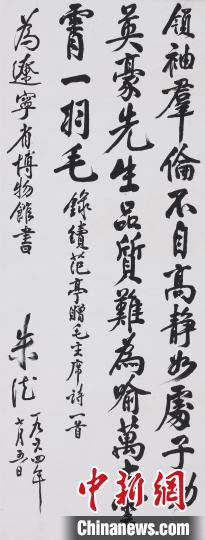 領袖羣倫不自高静如處子動
英豪先生品質難為喻萬古雲
霄一羽毛 錄續范亭贈毛主席詩一首
為遼寧省博物館書
朱德
一九六四年
七月五日
中新网
Chinanews.com